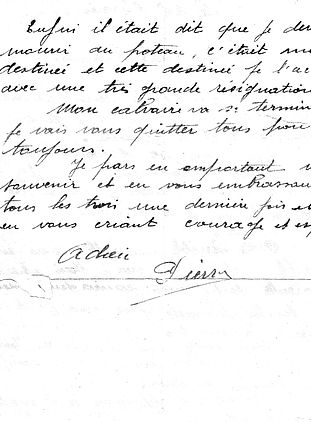 Enfin il était dit que je de
mourir au poteau, c'était m
destinée et cette destinée je l'ac
avec une très grande résignation
Mon calvaire va se termin
je vais vous quitter tous pou
toujours.
Je pars en emportant
souvenir et en vous embrassan
tous les trois une dernière fois e
en vous criant courage et es
Adieu
Pierre